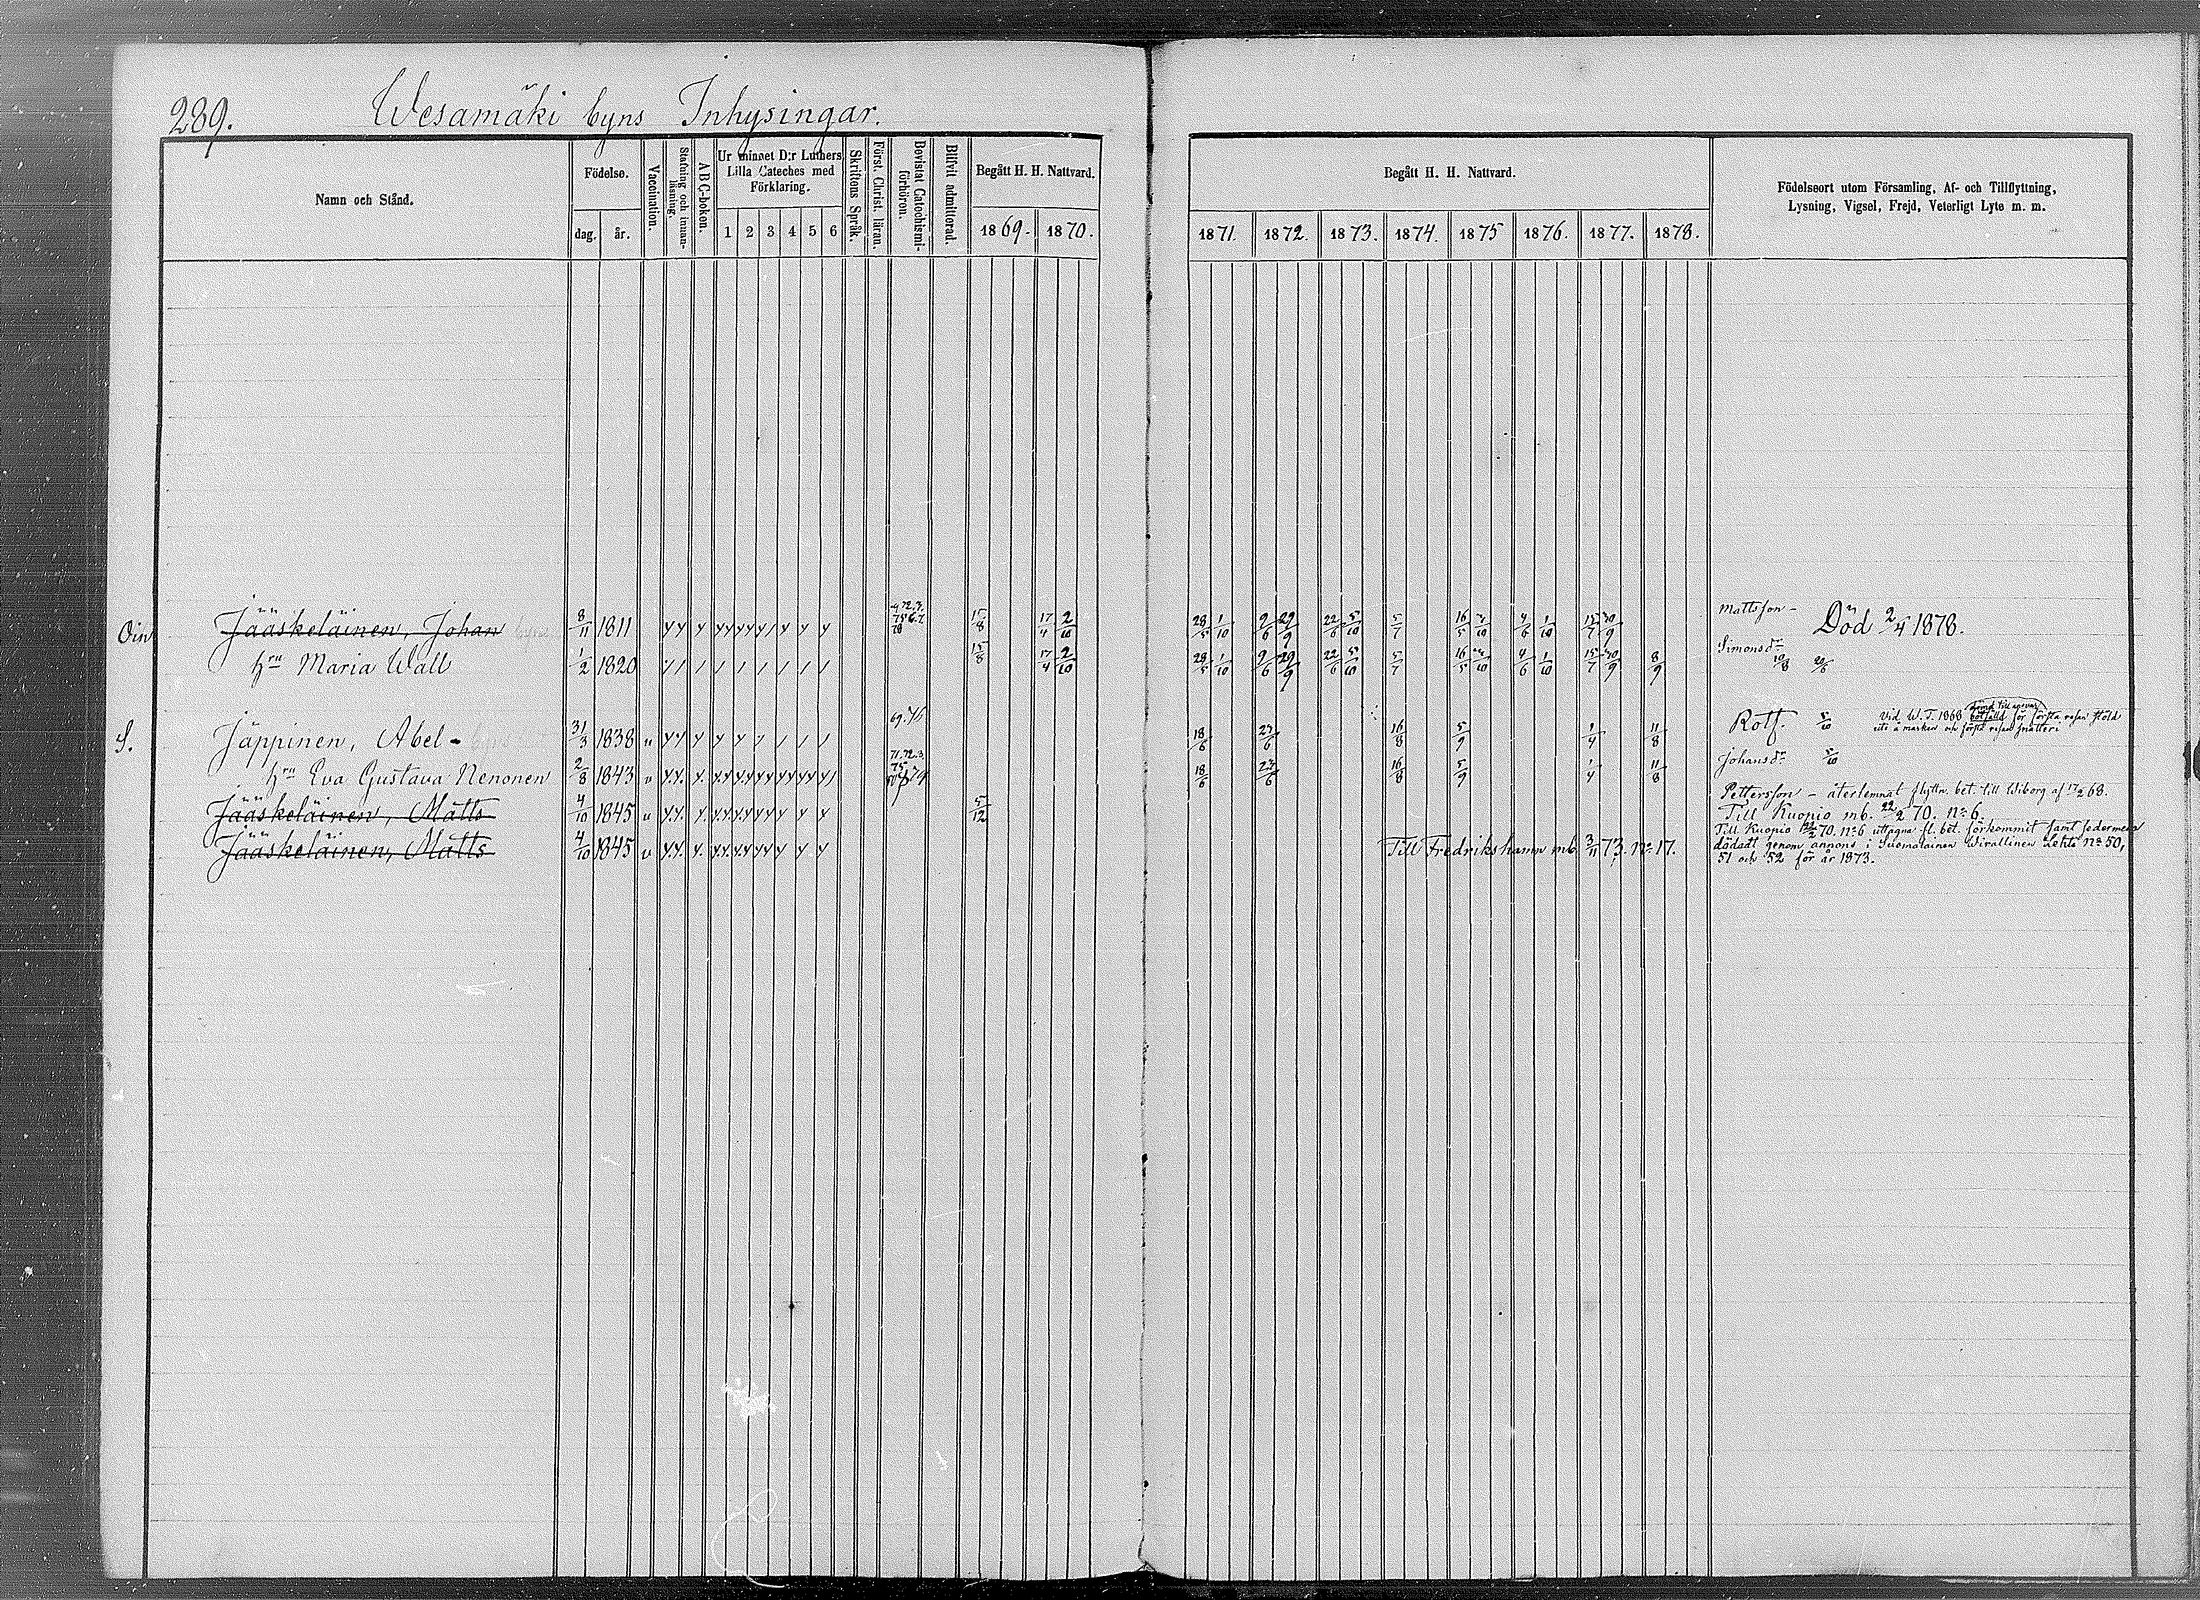 289.
Wesamäki byns Inhysingar.
Namn och Stånd.
Födelse.
dag. år.
Vaccination.
Stafning och innan-läsning.
ABC-boken.
Ur minnet D:r Luthers
Lilla Cateches med
Förklaring.
1 2 3 4 5 6
Skriftens Språk.
Först. Christ. läran.
Bevistat Catechismi-förhören.
Blifvit admitterad.
Begått H. H. Nattvard.
1869. 1870.
Begått H. H. Nattvard.
1871. 1872. 1873. 1874. 1875 1876. 1877. 1878.
Födelseort utom Församling, Af- och Tillflyttning,
Lysning, Vigsel, Frejd, Veterligt Lyte m. m.
Jääskeläinen, Johan 8/11 1811 15/8 17/4 2/10 28/5 1/10 9/6 29/9 22/6 5/10 5/7 16/5 4/6 1/10 15/7 30/9 Mattsson - Död 2/4 1878.
hru Maria Wall 1/2 1820 15/8 17/4 2/10 28/5 1/10 9/6 29/9 22/6 5/10 5/7 16/5 4/6 1/10 15/7 30/9 8/9 Simonsdr
S. Jäppinen, Abel - 31/3 1838 18/6 23/6 16/8 5/9 1/4 11/8 Rolf. 5/10 Vid W. T. 1868 för första resan stöld
hru Eva Gustava Nenonen 2/8 1843 18/6 23/6 16/8 5/9 1/4 11/8 Johansdr 5/10
Jääskeläinen, Matts 4/10 1845 5/12 Pettersson - återlemnat flyttn. bet. till Wiborg af 17/2 68.
Till Kuopio mb. 22/2 70. No 6.
Jääskeläinen, Matts 4/10 1845 Till Fredrikshamn mb. 3/11 73. No 17.
Till Kuopio 22/2 70. No 6 uttagna fl. bet. förkommit samt sedermera
dödadt genom annons i Suomalainen Wirallinen Lehti No 50,
51 och 52 för år 1873.